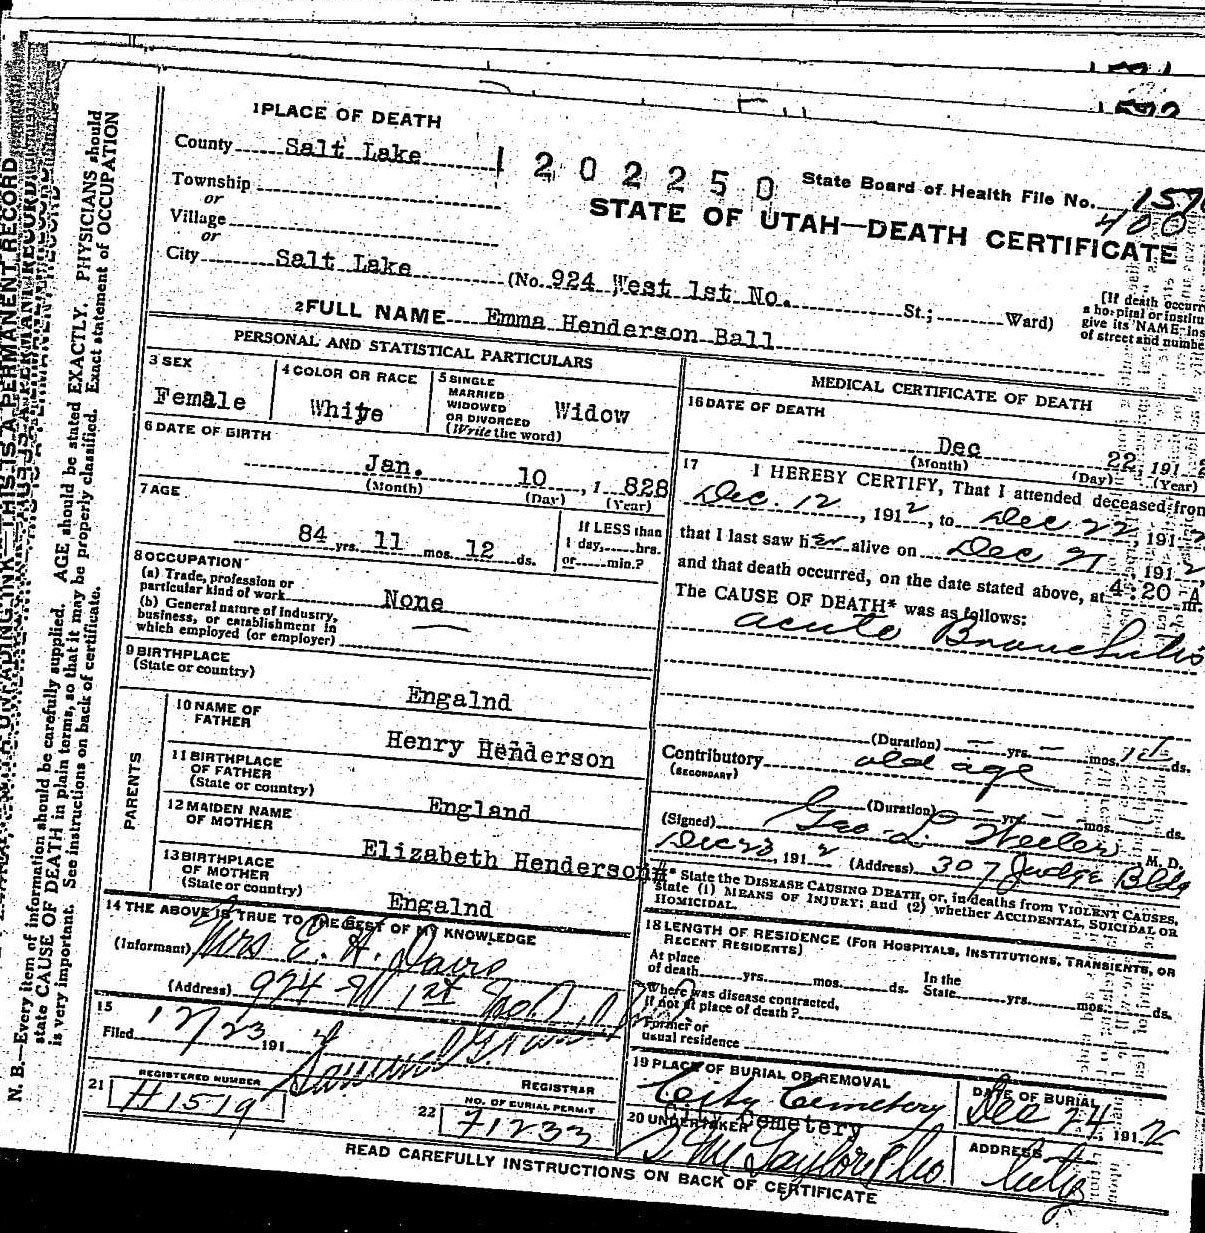 1 PLACE OF DEATH
County Salt Lake
1202250
State Board of Health File No.
400
Township
or
Village
or
City Salt Lake
STATE OF UTAH—DEATH CERTIFICATE
(No. 924 West 1st No. St.; Ward)
[If death occurr
a hospital or institu
give its NAME ins
of street and numbe
2 FULL NAME Emma Henderson Ball
PERSONAL AND STATISTICAL PARTICULARS
3 SEX
Female
4 COLOR OR RACE
White
5 SINGLE
MARRIED
WIDOWED
OR DIVORCED
(Write the word)
Widow
6 DATE OF BIRTH
Jan. 10, 1828
(Month) (Day) (Year)
7 AGE
84 yrs. 11 mos. 12 ds.
If LESS than
1 day, hrs.
or min.?
8 OCCUPATION
(a) Trade, profession or
particular kind of work None
(b) General nature of industry,
business, or establishment in
which employed (or employer)
9 BIRTHPLACE
(State or country)
Engalnd
PARENTS
10 NAME OF
FATHER
Henry Henderson
11 BIRTHPLACE
OF FATHER
(State or country)
England
12 MAIDEN NAME
OF MOTHER
Elizabeth Henderson#
13 BIRTHPLACE
OF MOTHER
(State or country)
Engalnd
14 THE ABOVE IS TRUE TO THE BEST OF MY KNOWLEDGE
(Informant) Mrs E. H. Davis
(Address) 924 W 1st No
15
Filed 12/23 191
Samuel G.
REGISTRAR
21
REGISTERED NUMBER
H1519
22
NO. OF BURIAL PERMIT
71233
MEDICAL CERTIFICATE OF DEATH
16 DATE OF DEATH
Dec 22, 191
(Month) (Day) (Year)
17 I HEREBY CERTIFY, That I attended deceased from
Dec. 12, 1912, to Dec 22, 1912
that I last saw her alive on Dec 21, 1912
and that death occurred, on the date stated above, at 4:20 A m.
The CAUSE OF DEATH* was as follows:
acute Bronchitis
(Duration) — yrs. — mos. ds.
Contributory old age
(SECONDARY)
(Duration) — yrs. — mos. — ds.
(Signed) Geo. L. M. D.
Dec 23, 1912 (Address) 307 Judge Bldg
* State the DISEASE CAUSING DEATH, or, in deaths from VIOLENT CAUSES,
state (1) MEANS OF INJURY; and (2) whether ACCIDENTAL, SUICIDAL OR
HOMICIDAL.
18 LENGTH OF RESIDENCE (FOR HOSPITALS, INSTITUTIONS, TRANSIENTS, OR
RECENT RESIDENTS)
At place
of death yrs. mos. ds.
In the
State yrs. mos. ds.
Where was disease contracted,
if not at place of death?
Former or
usual residence
19 PLACE OF BURIAL OR REMOVAL
City Cemetery
City Cemetery
DATE OF BURIAL
Dec 24, 1912
20 UNDERTAKER
S M Taylor & Co
ADDRESS
City
READ CAREFULLY INSTRUCTIONS ON BACK OF CERTIFICATE
N. B.—Every item of information should be carefully supplied. AGE should be stated EXACTLY. PHYSICIANS should
state CAUSE OF DEATH in plain terms, so that it may be properly classified. Exact statement of OCCUPATION
is very important. See instructions on back of certificate.